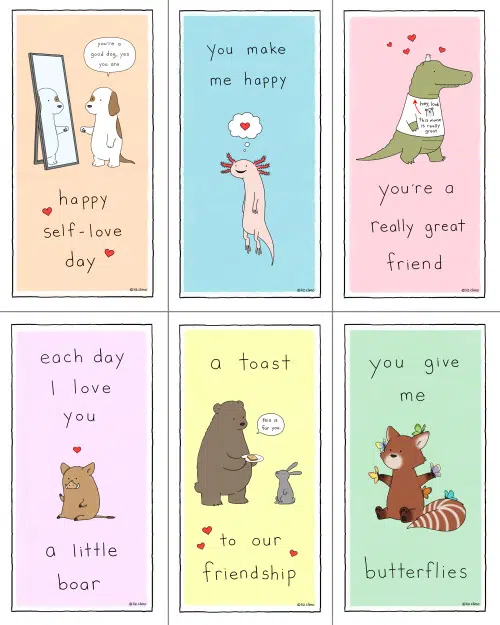 you're a
good dog, yes
you are
happy
self-love
day
©liz climo
you make
me happy
©liz climo
hey, look
this mouse
is really
great
you're a
really great
friend
©liz climo
each day
I love
you
a little
boar
©liz climo
a toast
this is
for you
to our
friendship
©liz climo
you give
me
butterflies
©liz climo